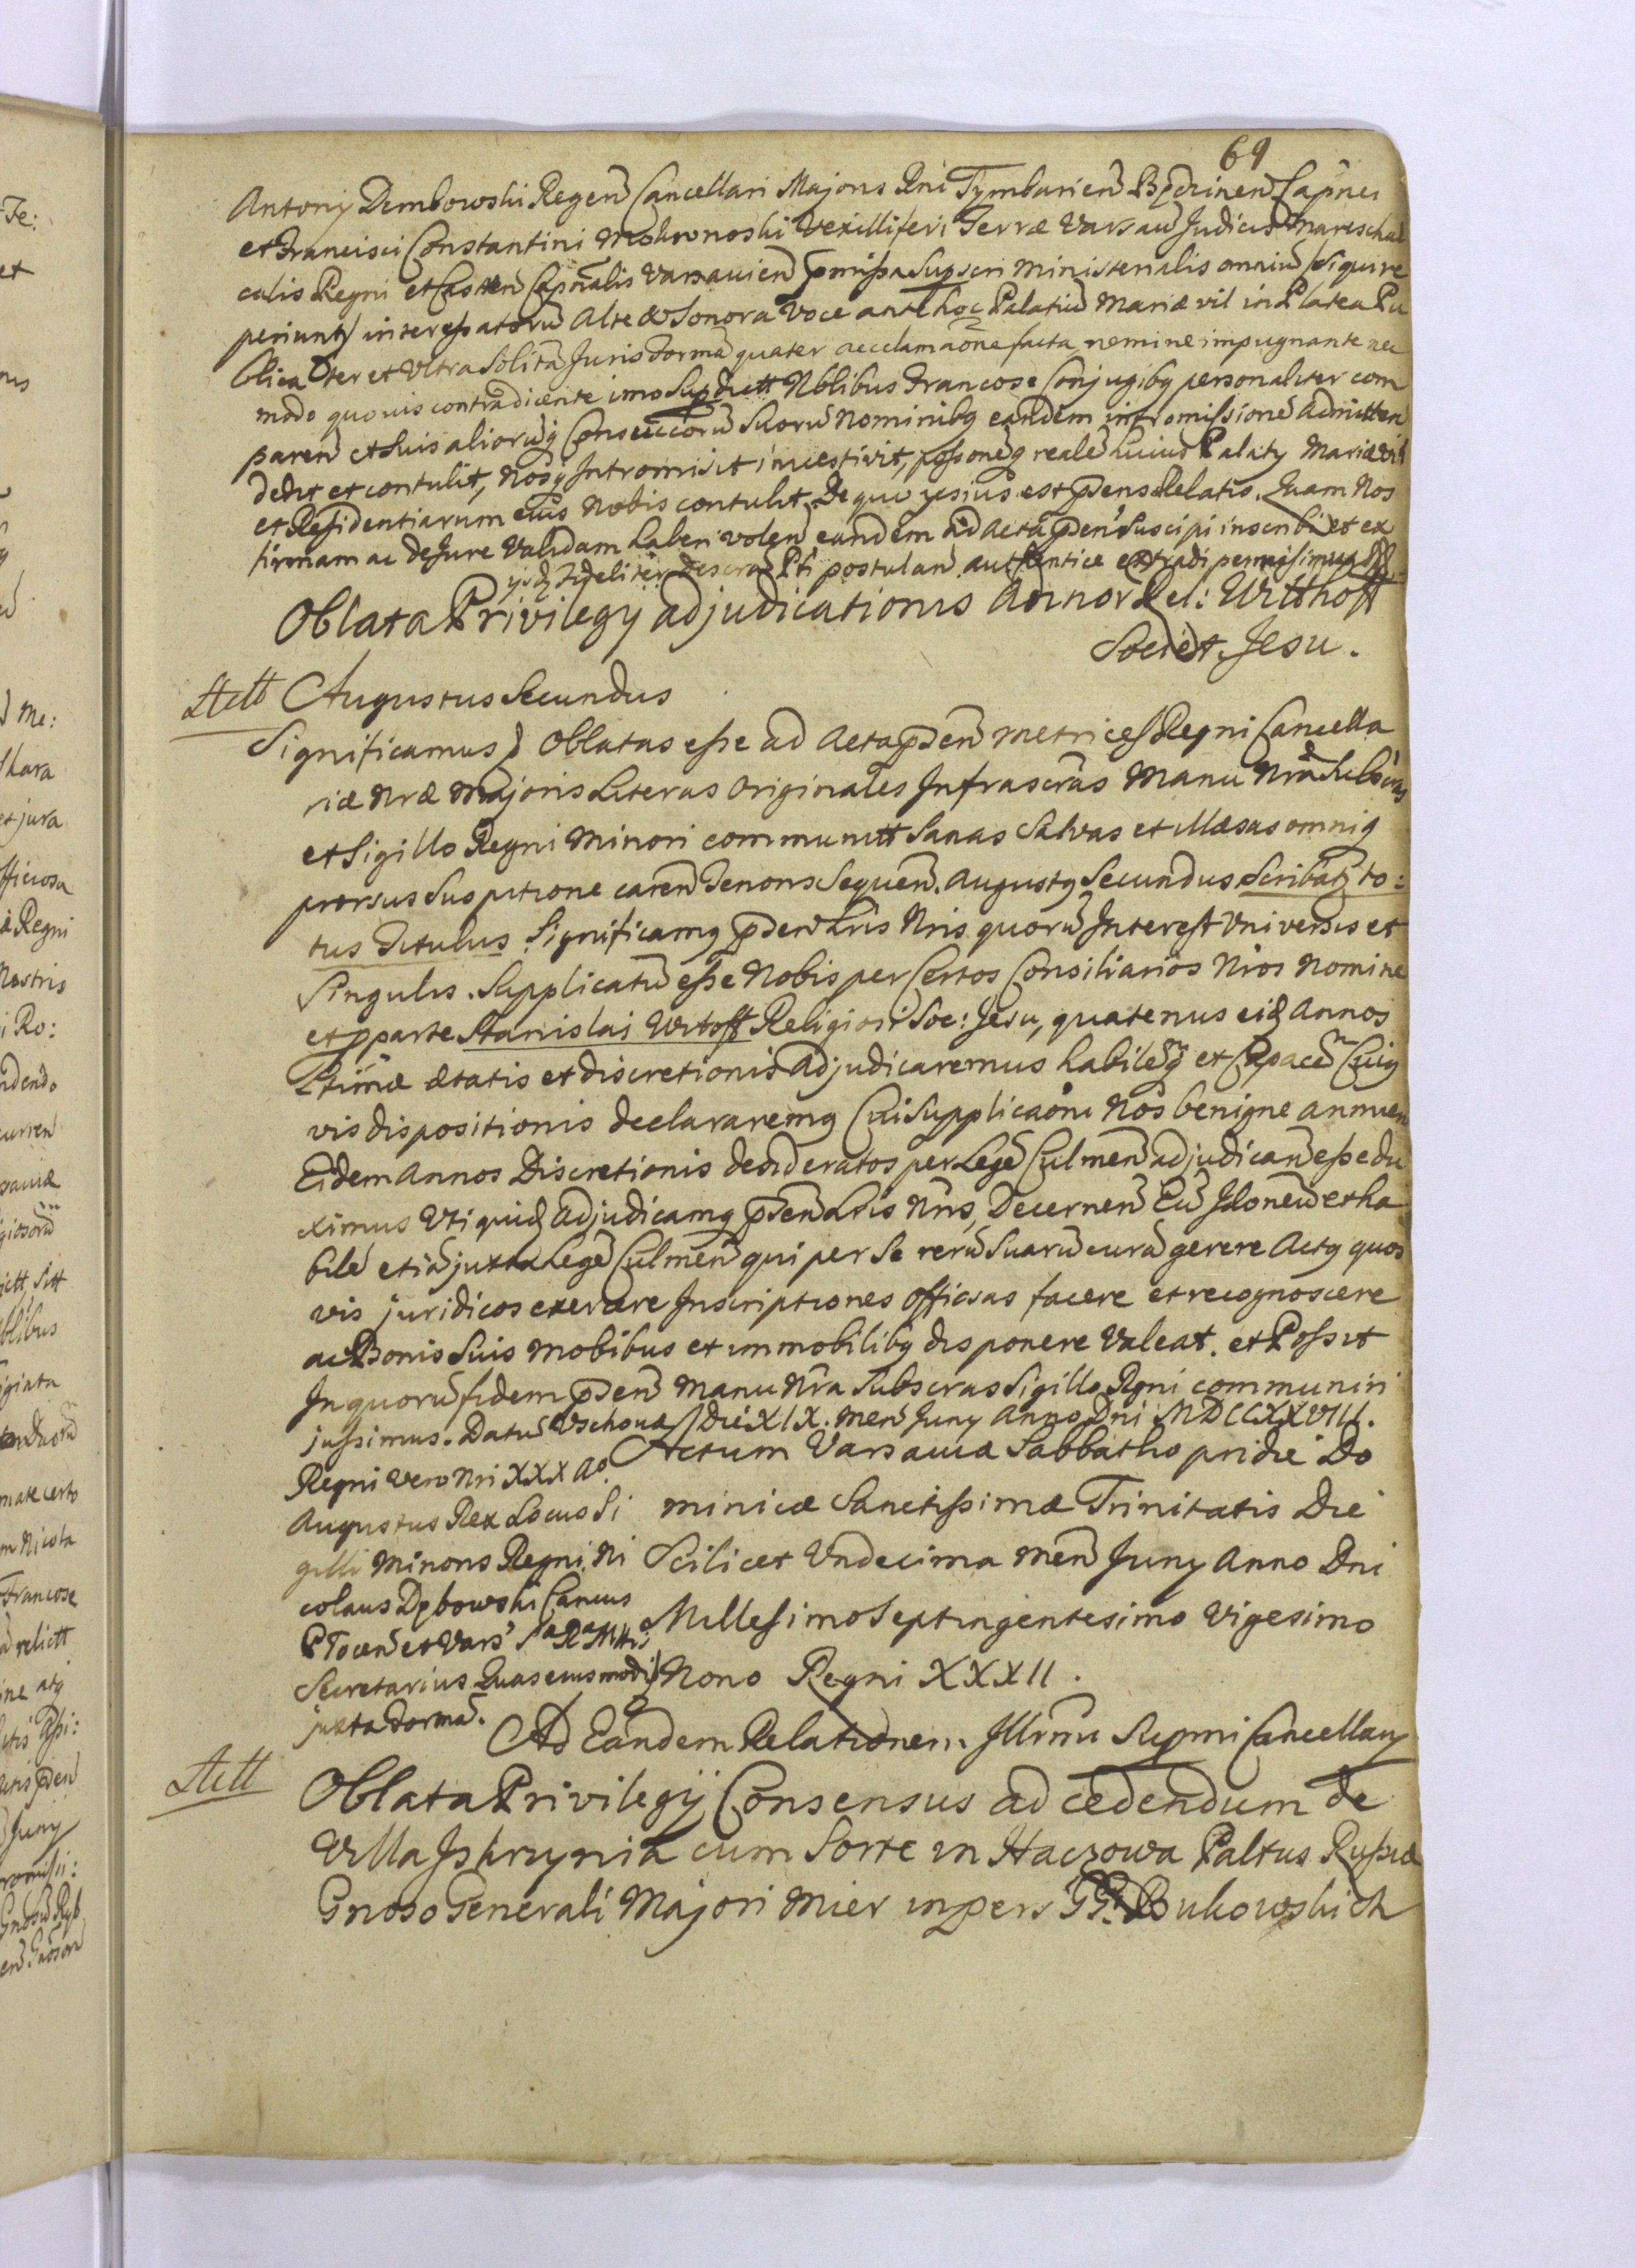 69
Antonij Dembowski Regen Cancellari Majoris Rni Tymbarien Będzinen Capnei
et Francisci Constantini Mokronoski Vexilliferi Terræ Varsav Judicis Mareschal
calis Regni et Castren Capnealis Varsavien pmissa Supscri Ministerialis omniu si qui re
periunt interessatoru alte & Sonora Voce ante hoc Palatiu Mariæ vil in Platea Pu
blica ter et Ultra Solita Juris Forma quater acclamaone facta nemine impugnante nec
modo quovis contradicente imo Supdictt Nblibus Francose Conjugibq personaliter com
paren et suis alioruq Consuccoru Suoru Nominibq eandem intromissione admitten
dedit et contulit, Nosq Intromisit investivit, possoneq reale huius Palatij Mariævil
et Residentiarum eius Nobis contulit. De quo ysius est pdens Relatio. Quam Nos
firmam ac de Jure Validam haberi volen eandem ad acta pden Suscipi inscribi et ex
ijsd fideliter descra Pti postulan authentice extradi permisimus
Oblata Privilegij adjudicationis Annor Rel: Witthoff
Societ. Jesu.
Actt Augustus Secundus
Significamus Oblatas esse ad Acta pden Metrices Regni Cancella
riæ Nræ Majoris Literas Originales Infrascras Manu Nra Subscras
et Sigillo Regni Minori communitt Sanas Salvas et illæsas omniq
prorsus Suspitione caren Tenoris Sequen. Augustq Secundus Scribatr to:
tus Titulus. Significamq pden Lris Nris quoru Interest Universis et
Singulis. Supplicatu esse Nobis per Certos Consiliarios Nros nomine
et pparte Stanislai Witoff Religiosi Soc: Jesu, quatenus eid Annos
Ltimæ ætatis et discretionis adjudicaremus habileq et Capace Cuiq
vis dispositionis declararemq Cui Supplicaoni Nos benigne annuen
Eidem Annos Discretionis desideratos per Lege Culmen adjudican esse du
ximus Uti quid adjudicamq pden Lris Nris, Decernen Eu Idoneu et ha
bile etia juxta Lege Culmen qui per Se reru Suaru cura gerere Actq quos
vis juridicos exercere Inscriptiones Officsas facere et recognoscere
ac Bonis Suis Mobibus et immobilibq disponere Valeat. et Possit
In quoru fidem pden Manu Nra Subscras Sigillo Rgni communiri
jussimus. Datu Vschovæ Die XIX. Men Junij Anno Dni MDCCXXVIII.
Regni vero Nri XXX Ao.
Augustus Rex Locus Si
gilli Minoris Regni. Ni
colaus Dębowski Cancus
Plocen et Vars SaRaMttis
Secretarius Quas eiusmodi
juxta Forma.
Actum Varsaviæ Sabbatho pridie Do
minicæ Sanctissimæ Trinitatis Die
Scilicet Undecima Men Junij Anno Dni
Millesimo Septingentesimo Vigesimo
Nono Regni XXXII.
Ad Eandem Relationem Illrmi Supmi Cancellarij
Actt
Oblata Privilegij Consensus ad cedendum de
Villa Iskrzynia cum Sorte in Haczowa Paltus Russiæ
Gnoso Generali Majori Mier in pers GG. Bukowskich